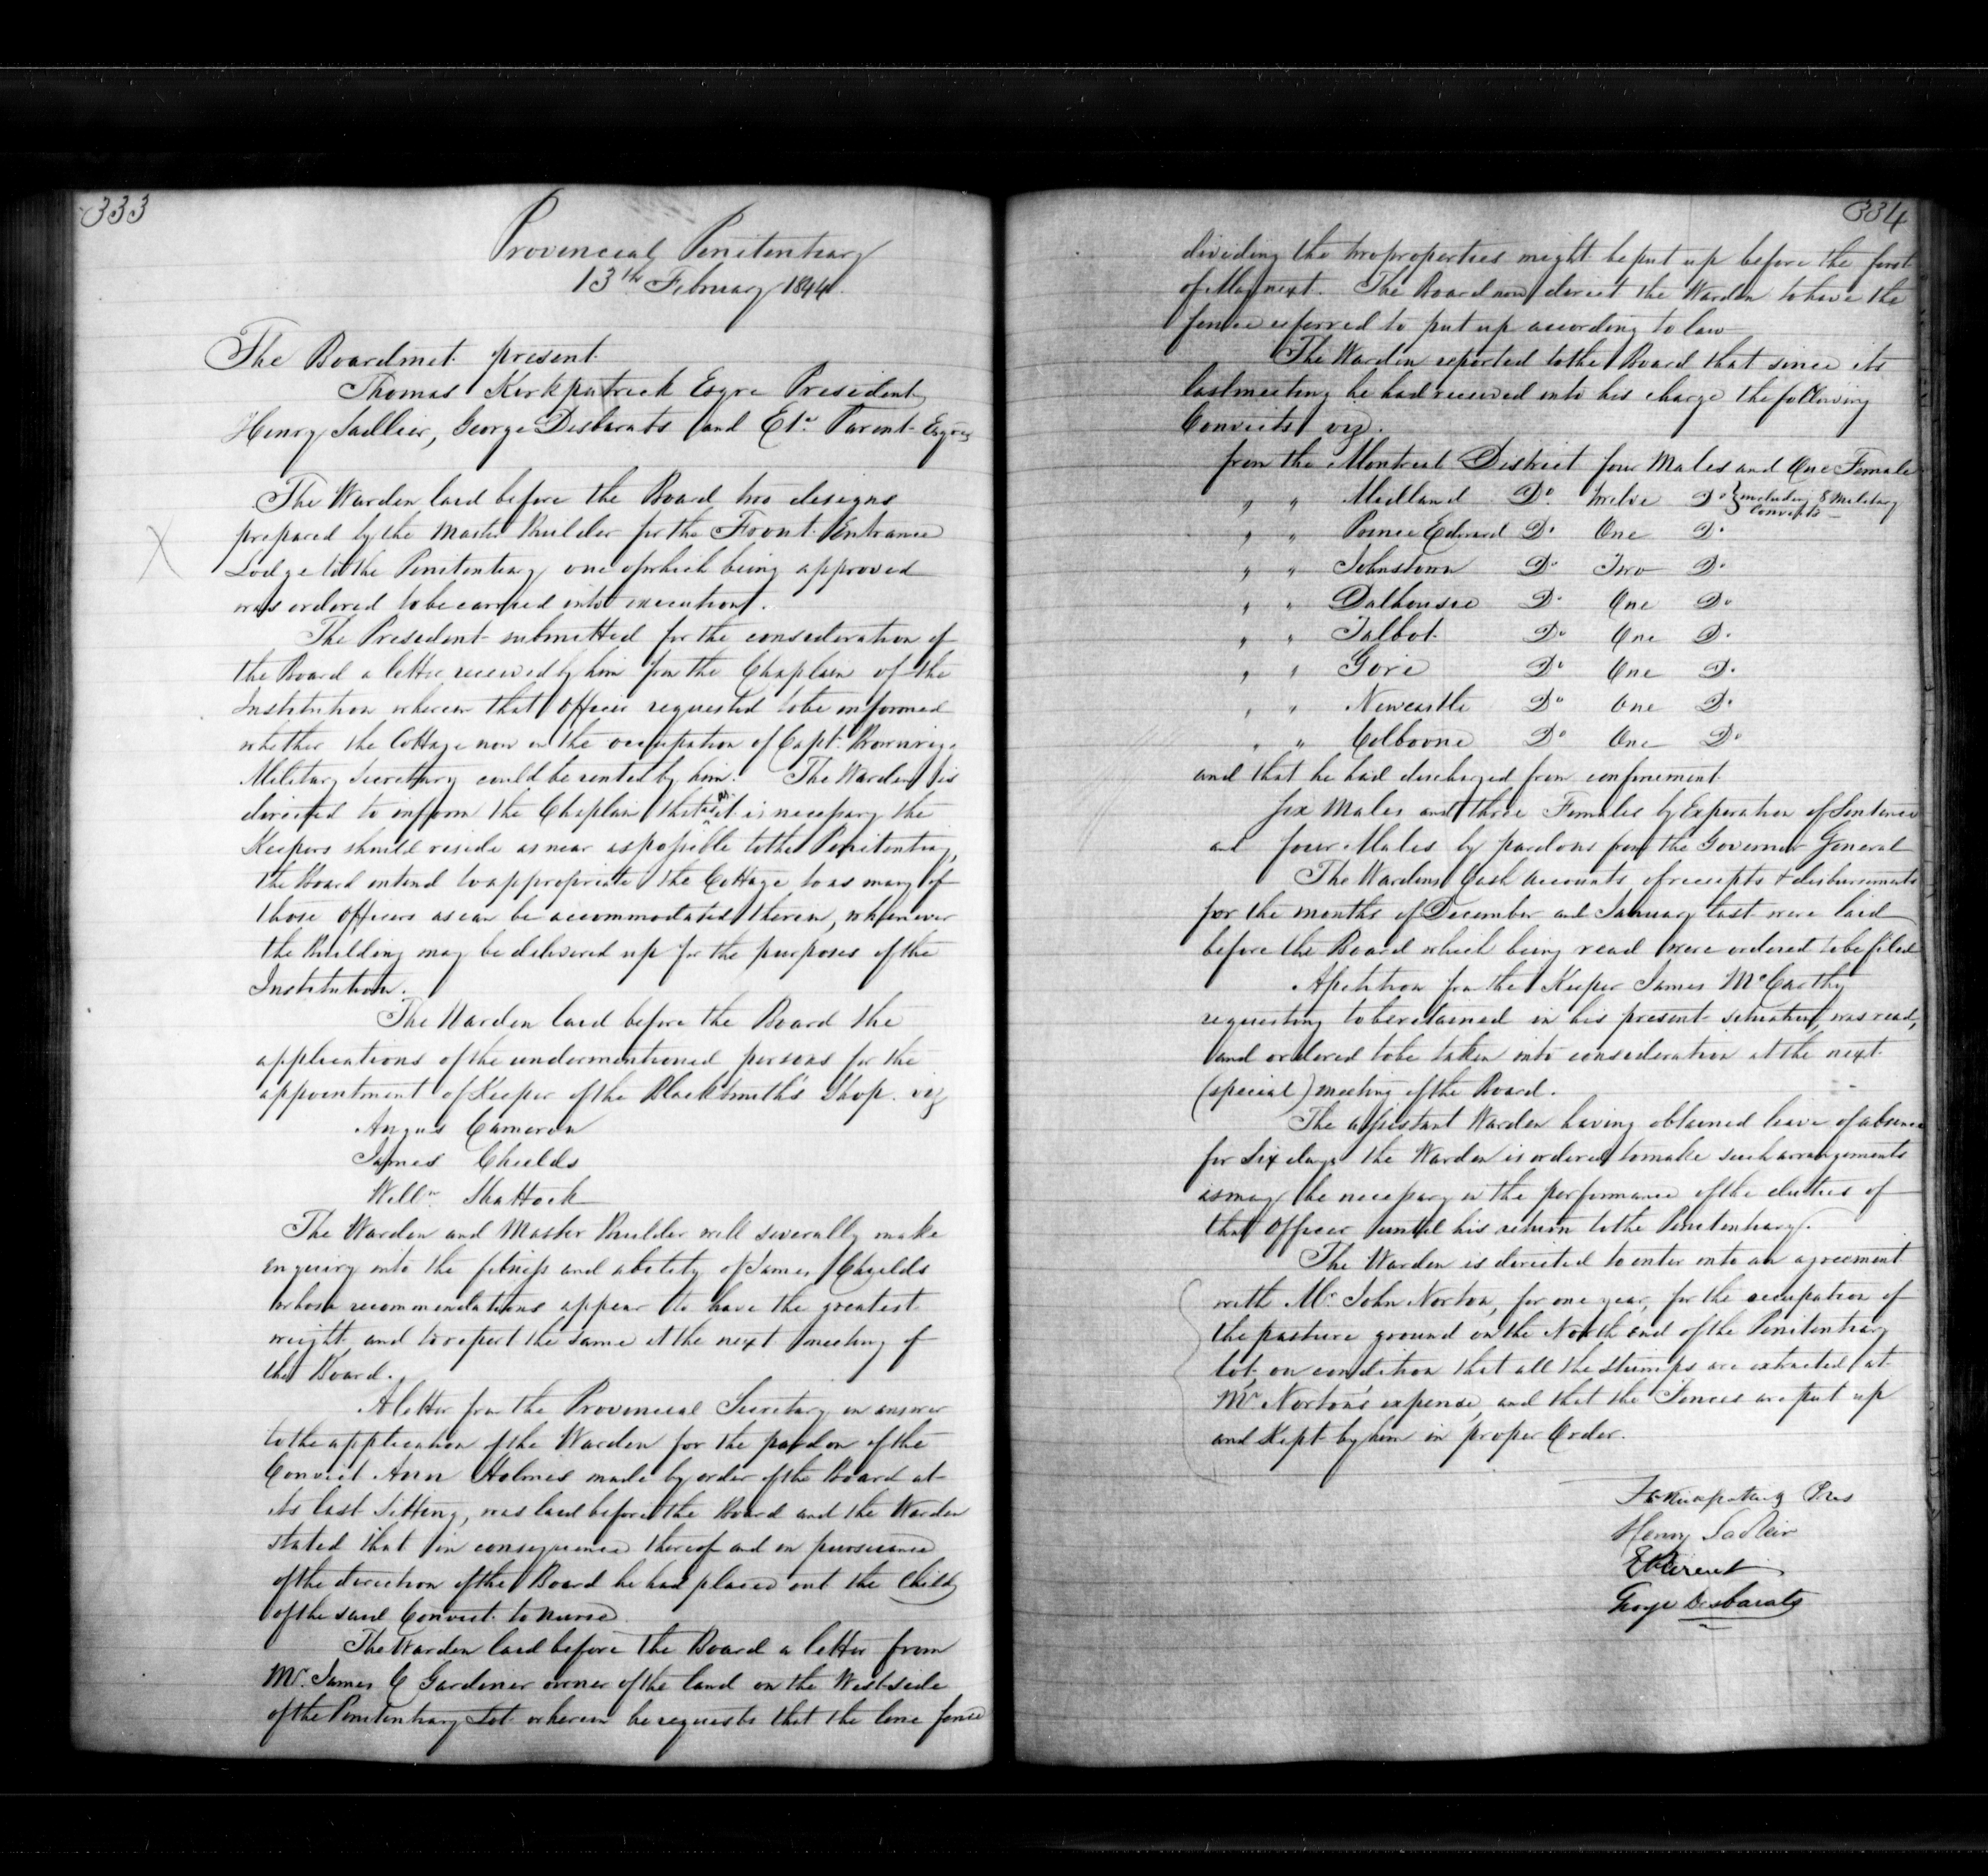 333
Provincial Penitentiary
13th February 1844.
The Board met present
Thomas Kirkpatrick Esqre President
Henry Sadlier, George Desbarats and Etn. Parent Esqres
The Warden laid before the Board two designs
prepared by the Master Builder for the Front Entrance
Lodge to the Penitentiary one of which being approved
was ordered to be carried into execution.
The President submitted for the consideration of
the Board a letter received by him from the Chaplain of the
Institution wherein that Officer requested to be informed
whether the Cottage now in the occupation of Capt. Brownrigg
Military Secretary could be rented by him. The Warden is
directed to inform the Chaplain that as it is necessary the
Keepers should reside as near as possible to the Penitentiary,
the Board intend to appropriate the Cottage to as many of
those Officers as can be accommodated therein, whenever
the Building may be delivered up for the purposes of the
Institution.
The Warden laid before the Board the
applications of the undermentioned persons for the
appointment of Keeper of the Blacksmith's Shop. viz
Angus Cameron
James Chields
Willm Shattock
The Warden and Master Builder will severally make
enquiry into the fitness and ability of James Chields
whose recommendations appear to have the greatest
weight and to report the same at the next meeting of
the Board.
A letter from the Provincial Secretary in answer
to the application of the Warden for the pardon of the
Convict Ann Holmes made by order of the Board at
its last Sitting, was laid before the Board and the Warden
stated that in consequence thereof and in pursuance
of the direction of the Board he had placed out the Child
of the said Convict to nurse.
The Warden laid before the Board a letter from
Mr. James C Gardiner owner of the land on the West side
of the Penitentiary Lot wherein he requests that the line fence
334
dividing the two properties might be put up before the first
of May next. The Board now direct the Warden to have the
fence referred to put up according to law
The Warden reported to the Board that since its
last meeting he had received into his charge the following
Convicts viz.
from the Montreal District four Males and One Female
" " Midland Do. Twelve Do { including 8 Military
Convicts
" " Prince Edward Do. One Do.
" " Johnstown Do Two Do.
" " Dalhousie Do. One Do
" " Talbot Do One Do.
" " Gore Do One Do.
" " Newcastle Do One Do.
" " Colborne Do One Do
and that he had discharged from confinement
Six Males and three Females by Expiration of Sentence
and four Males by pardons from the Governor General
The Wardens Cash accounts of receipts & disbursements
for the months of December and January last were laid
before the Board which being read were ordered to be filed
A petition from the Keeper James McCarthy
requesting to be retained in his present situation, was read,
and ordered to be taken into consideration at the next
(special) meeting of the Board.
The assistant Warden having obtained leave of absence
for Six days the Warden is ordered to make such arrangements
as may be necessary in the performance of the duties of
that Officer until his return to the Penitentiary.
The Warden is directed to enter into an agreement
with Mr. John Norton, for one year, for the occupation of
the pasture ground on the North end of the Penitentiary
lot, on condition that all the Stumps are extracted at
Mr Norton's expense, and that the Fences are put up
and Kept by him in proper Order.
T Kirkpatrick Pres
Henry Sadleir
E Parent
George Desbarats